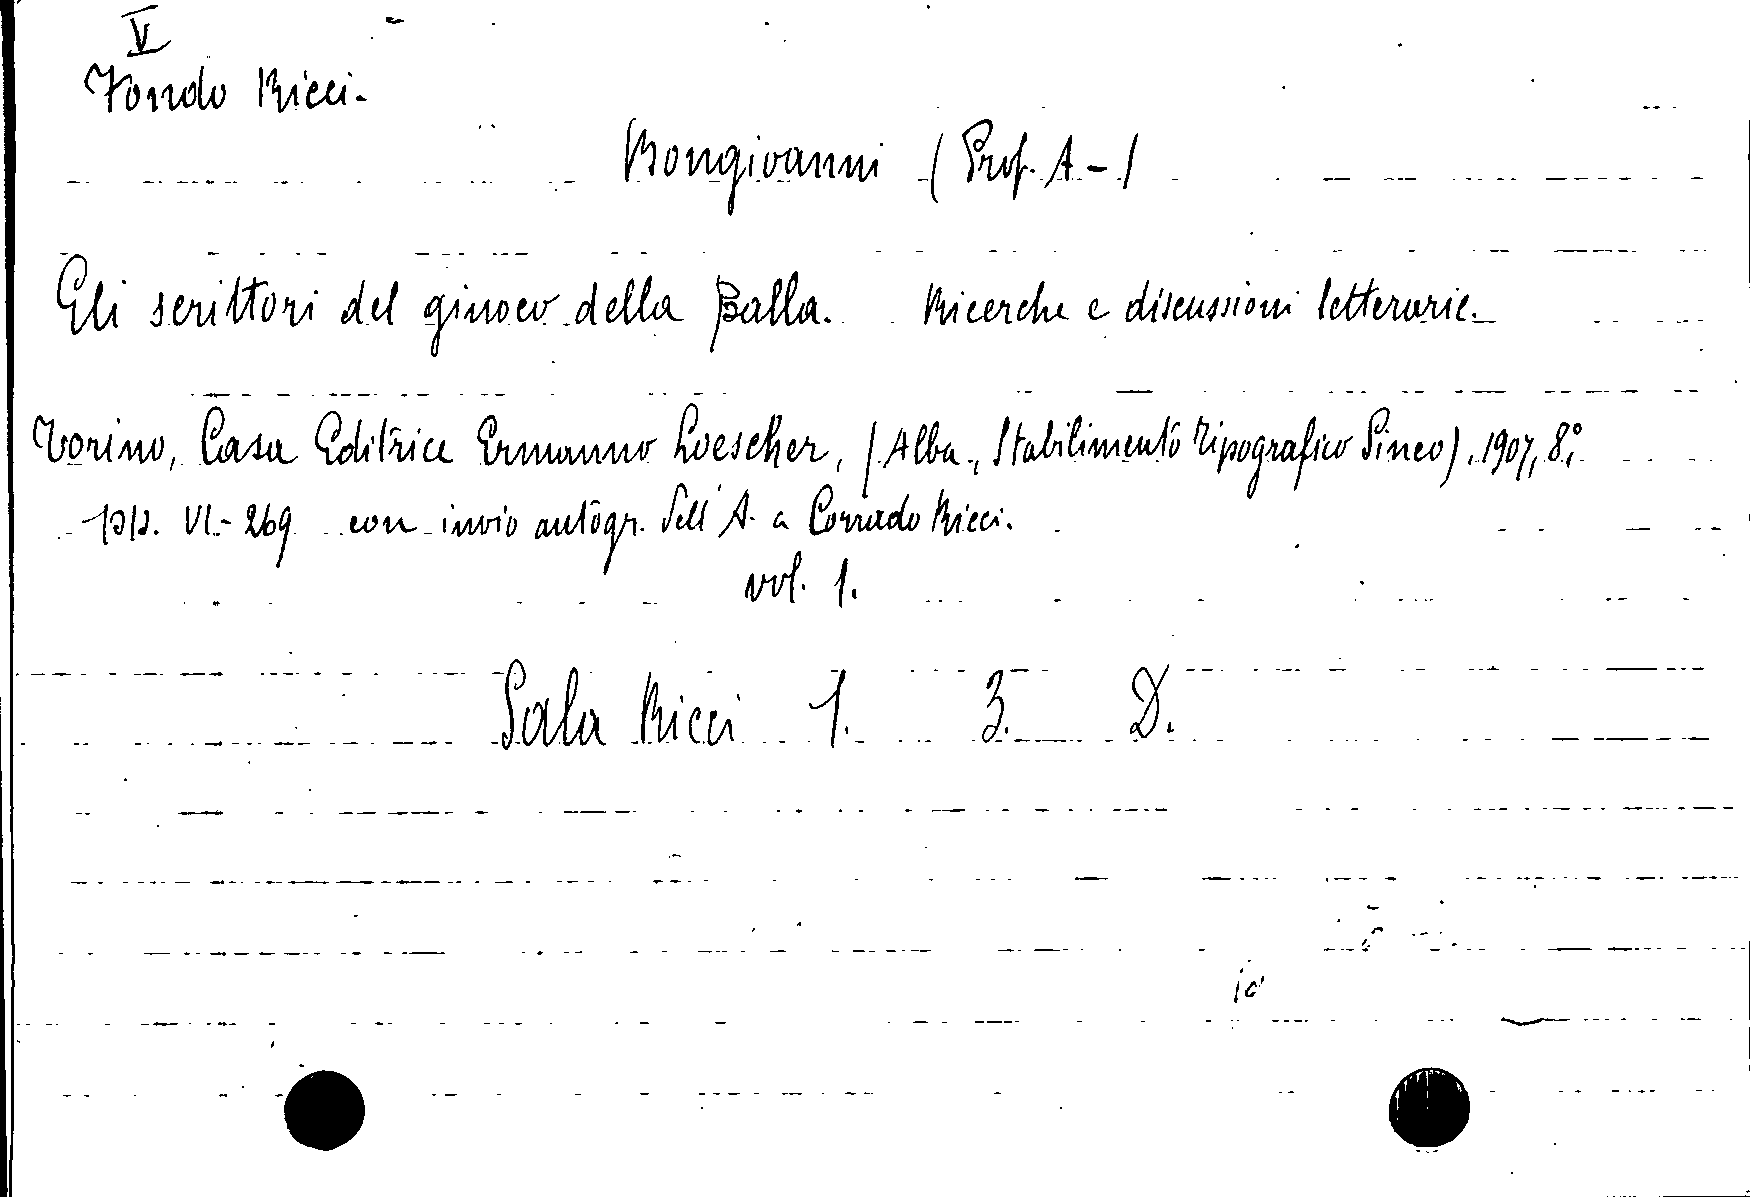 V
Fondo Ricci.
Bongiovanni (Prof. A-)
Gli scrittori del giuoco della palla. Ricerche e discussioni letterarie.
Torino, Casa Editrice Ermanno Loescher, (Alba, Stabilimento Tipografico Sineo), 1907, 8°.
pp. VI-269 con invio autogr. dell'A. a Corrado Ricci.
vol. 1.
Sala Ricci 1. 3. D.